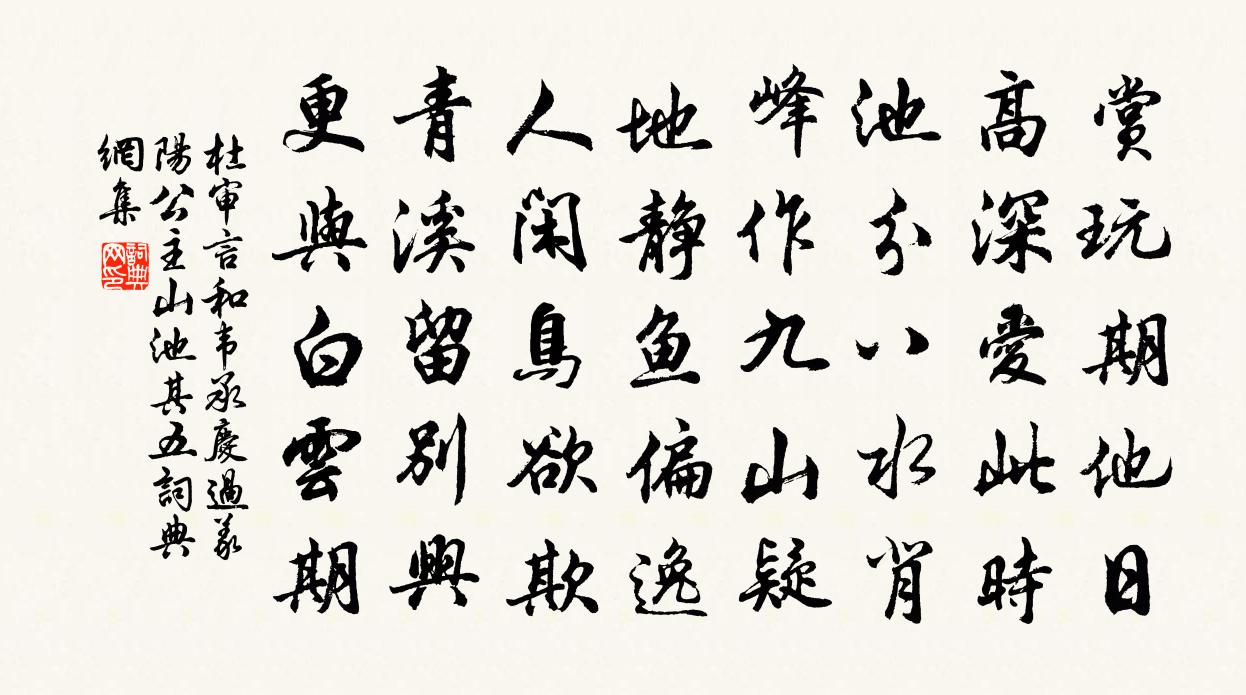 賞玩期他日
髙深愛此時
池分八水背
峰作九山疑
地靜鱼偏逸
人閑鳥欲欺
青溪留別興
更與白雲期
杜审言和韦承慶過義
陽公主山池其五詞典
網集
詞典
网印